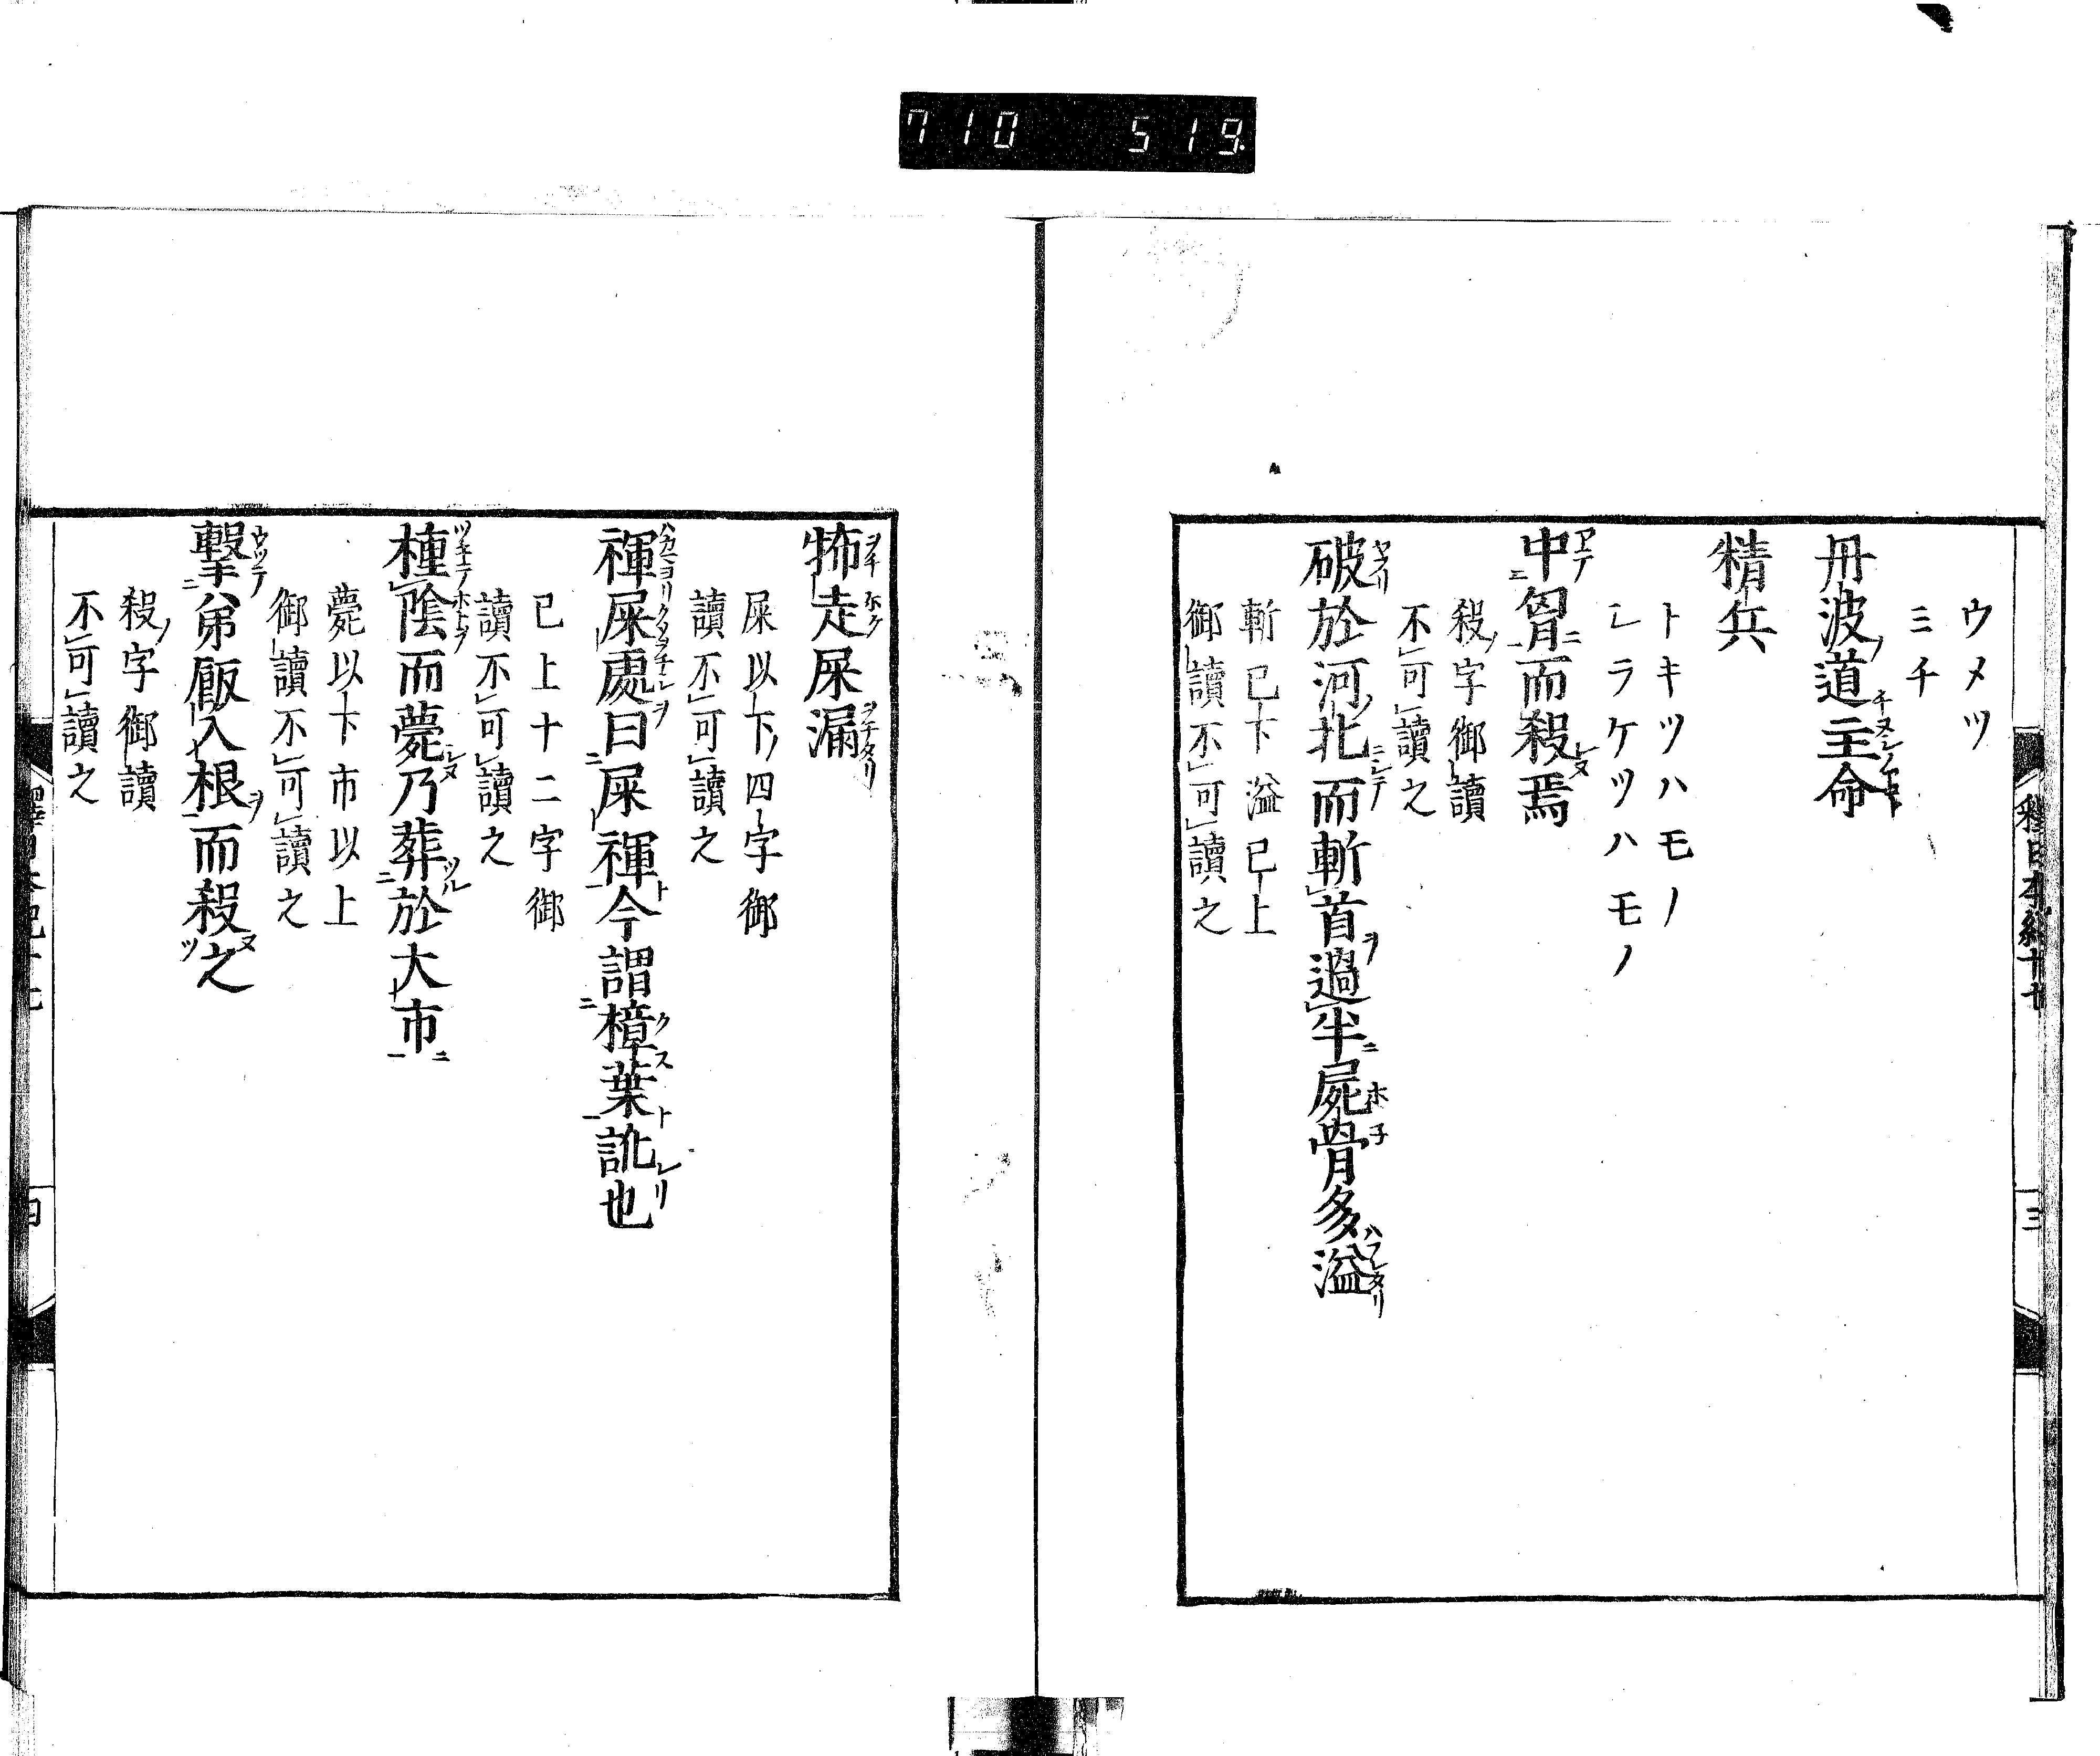 710 519
ウメツ
ミチ
丹波道主命
精兵
トキツハモノ
シラケツハモノ
中胷而殺焉
殺字御讀
不可讀之
破於河北而斬首過半屍骨多溢
斬已下溢已上
御讀不可讀之
怖走屎漏
屎以下四字御
讀不可讀之
褌屎處曰屎褌今謂樟葉訛也
已上十二字御
讀不可讀之
橦陰而薨乃葬於大市
薨以下市以上
御讀不可讀之
撃八弟飯入根而殺之
殺字御讀
不可讀之